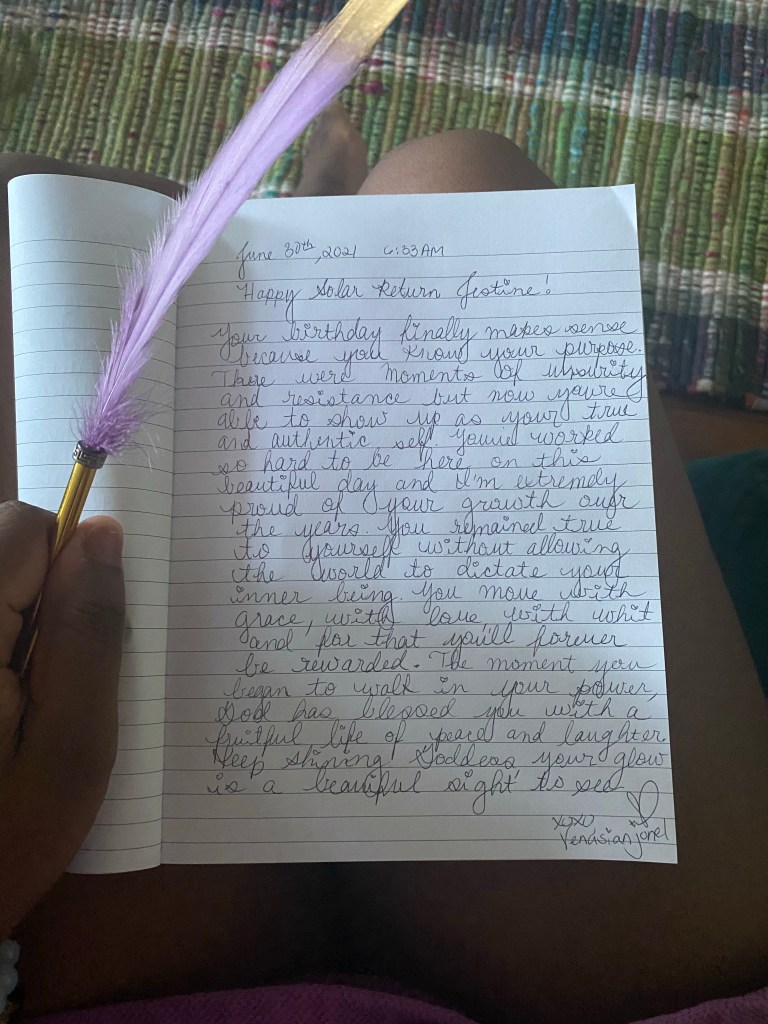 June 30th, 2021 6:33AM
Happy Solar Return Jestine!
Your birthday finally makes sense
because you know your purpose.
There were moments of
and resistance but now you're
able to show up as your true
and authentic self. You've worked
so hard to be here on this
beautiful day and I'm extremely
proud of your growth over
the years. You remained true
to yourself without allowing
the world to dictate your
inner being. You move with
grace, with love, with whit
and for that you'll forever
be rewarded. The moment you
began to walk in your power,
God has blessed you with a
fruitful life of peace and laughter.
Keep shining Goddess your glow
is a beautiful sight to see
xoxo